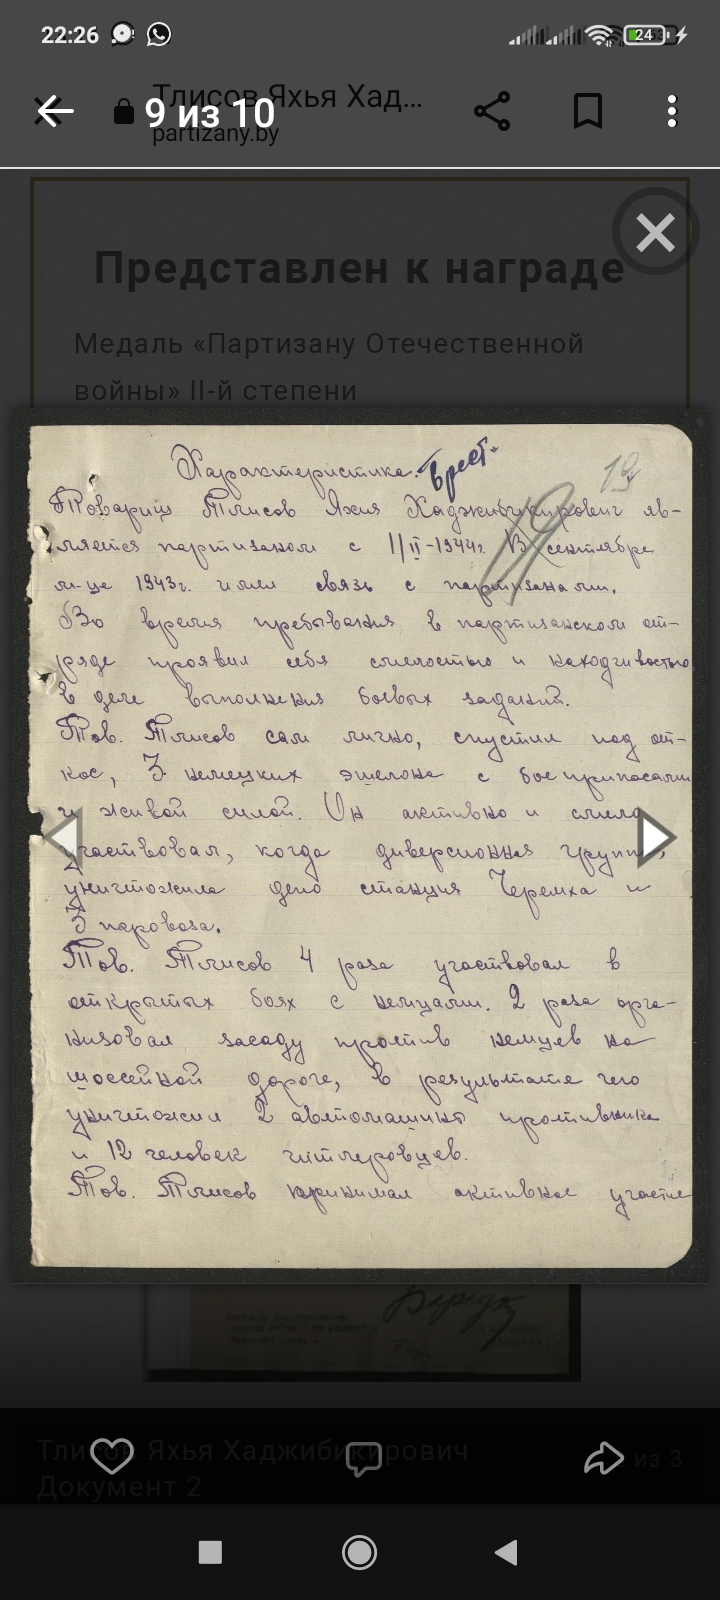 22:26
24
Тлисов Яхья Хад...
9 из 10
partizany.by
Представлен к награде
Медаль «Партизану Отечественной
войны» II-й степени
Характеристика. Брест.
19
Товарищ Тлисов Яхия Хаджибикирович яв-
ляется партизаном с 1/II-1944г. В сентябре
м-це 1943г. имел связь с партизанами.
Во время пребывания в партизанском от-
ряде проявил себя смелостью и находчивостью
в деле выполнения боевых заданий.
Тов. Тлисов сам лично, спустил под от-
кос, 3 немецких эшелона с боеприпасами
и живой силой. Он активно и смело
участвовал, когда диверсионная группа,
уничтожила депо станция Черемха и
3 паровоза.
Тов. Тлисов 4 раза участвовал в
открытых боях с немцами. 2 раза орга-
низовал засаду против немцев на
шоссейной дороге, в результате чего
уничтожил 2 автомашины противника
и 12 человек гитлеровцев.
Тов. Тлисов принимал активное участие
Тлисов Яхья Хаджибикирович
из 3
Документ 2